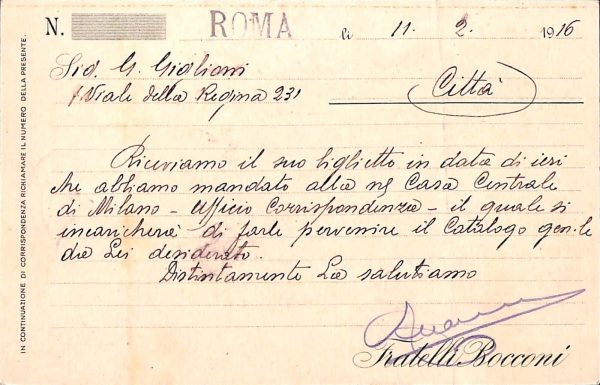 N. ROMA li 11. 2. 1916
Sig. G. Gigliani
Viale della Regina 231
Città
Riceviamo il suo biglietto in data di ieri
che abbiamo mandato alla ns Casa Centrale
di Milano - Ufficio Corrispondenza - il quale si
incaricherà di farle pervenire il Catalogo gen.le
da Lei desiderato.
Distintamente La salutiamo
Fratelli Bocconi
IN CONTINUAZIONE DI CORRISPONDENZA RICHIAMARE IL NUMERO DELLA PRESENTE.